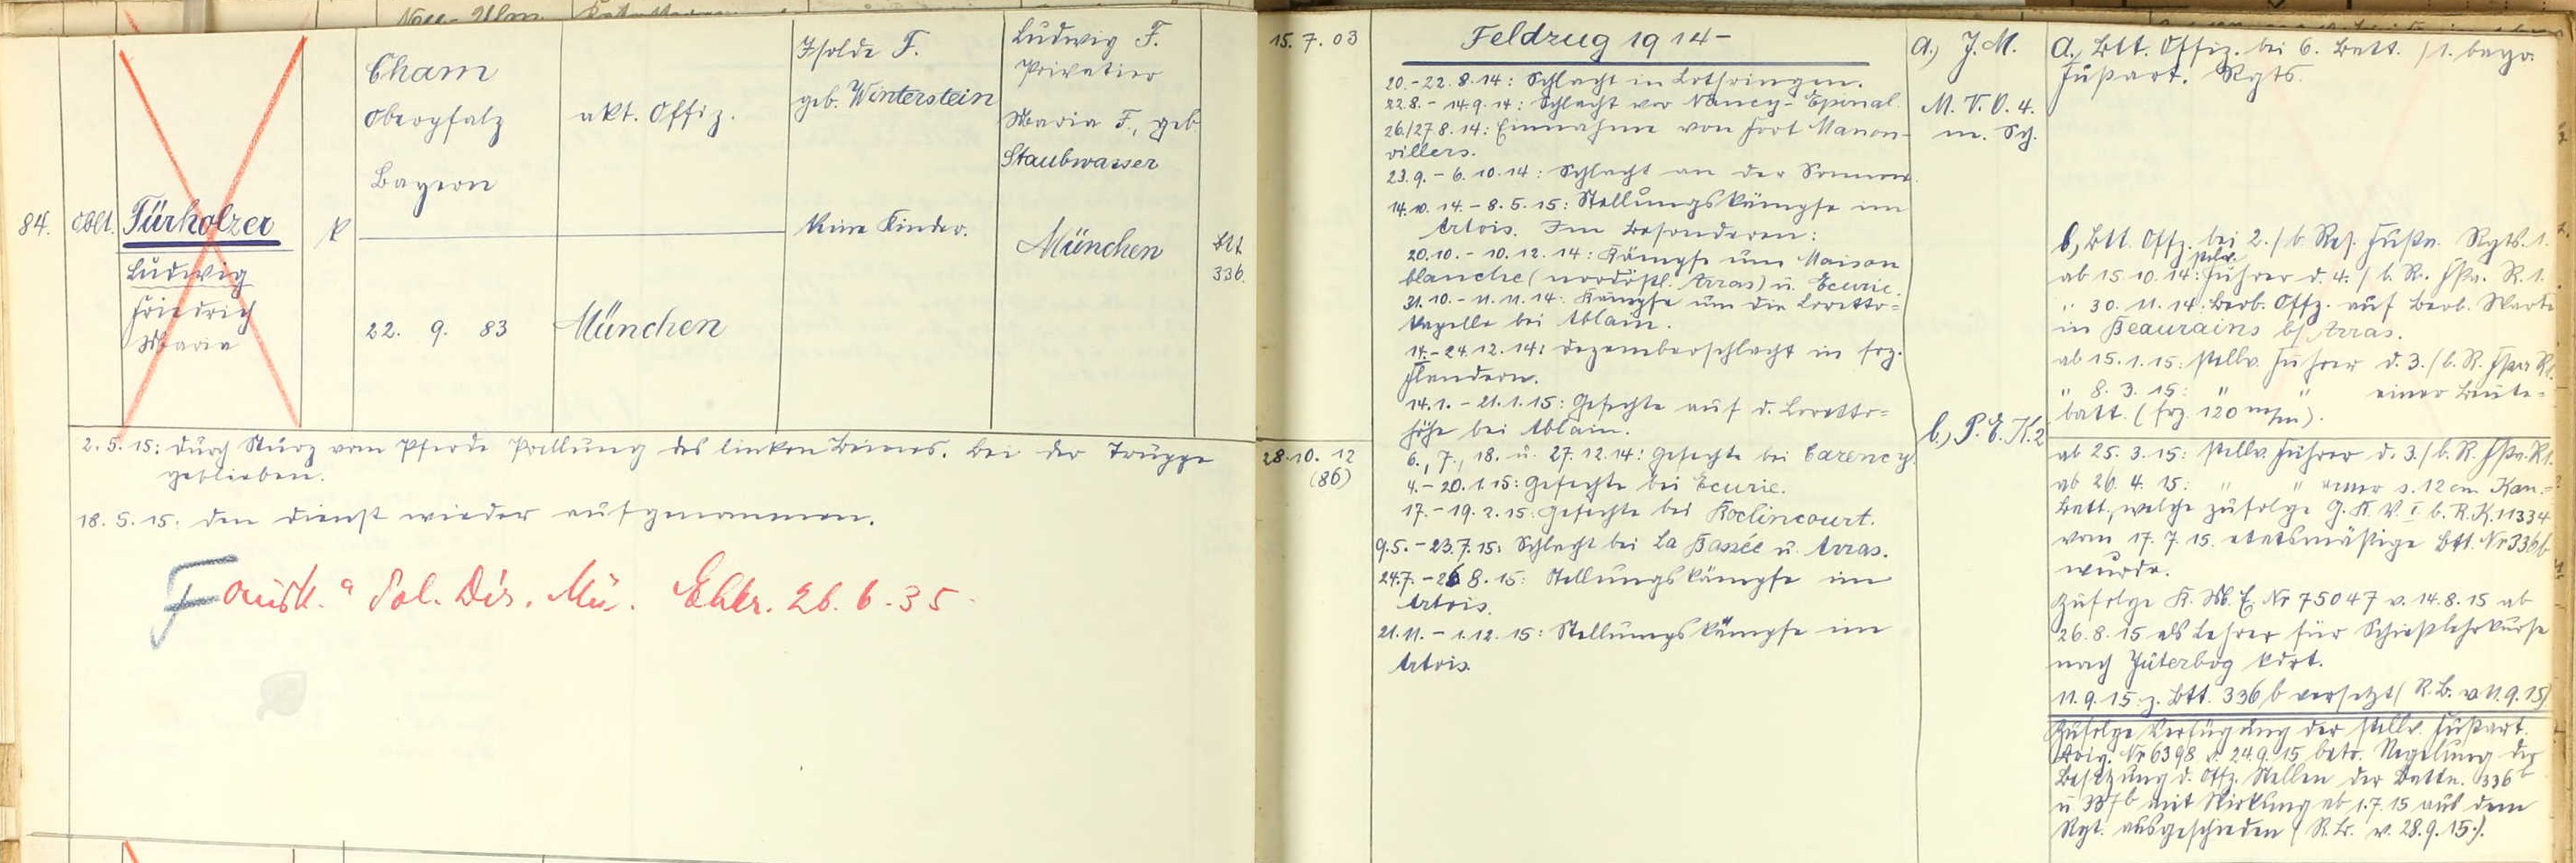 84.
Oblt.
Türholzer
Ludwig
Friedrich
Maria
k
Cham
Oberpfalz
Bayern
22. 9. 83
akt. Offiz.
München
Isolde F.
geb. Winterstein
Keine Kinder.
Ludwig F.
Privatier
Maria F., geb.
Staubwasser
München
Btt.
336.
2.5.15: Durch Sturz vom Pferde Prellung des linken Beines. Bei der Truppe
geblieben.
18.5.15: Den Dienst wieder aufgenommen.
Pol. Dir. Mü. 26.6.35
15.7.03
28.10.12
(86)
Feldzug 1914-
20.-22.8.14: Schlacht in Lothringen.
22.8.-14.9.14: Schlacht vor Nancy-Epinal.
26./27.8.14: Einnahme von Fort Manon-
villers.
23.9.-6.10.14: Schlacht an der Somme.
14.10.14.-8.5.15: Stellungskämpfe im
Artois. Im Besonderen:
20.10.-10.12.14: Kämpfe um Maison
blanche (nordöstl. Arras) u. Ecurie.
31.10.-11.11.14: Kämpfe um die Loretto-
kapelle bei Ablain.
14.-24.12.14: Dezemberschlacht in frz.
Flandern.
14.1.-21.1.15: Gefechte auf d. Loretto-
höhe bei Ablain.
6., 7., 18. u. 27.12.14: Gefechte bei Carency.
4.-20.1.15: Gefechte bei Ecurie.
17.-19.2.15: Gefechte bei Roclincourt.
9.5.-23.7.15: Schlacht bei La Bassée u. Arras.
24.7.-26.8.15: Stellungskämpfe im
Artois.
21.11.-1.12.15: Stellungskämpfe im
Artois.
a.) J.M.
M.V.O.4.
m. Sch.
b.) P.E.K.2
a., Btt. Offiz. bei 6. Batt. / 1. bayr.
Fußart. Rgts.
b, Btt. Offz. bei 2./b. Res. Fußa. Rgts. 1.
ab 15.10.14: stellv. Führer d. 4./b. R. Fßa. R. 1.
" 30.11.14: Beob. Offz. auf Beob. Warte
in Beaurains b/ Arras.
ab 15.1.15: stellv. Führer d. 3./b. R. Fßa R1.
" 8.3.15: " " einer Beute-
batt. (frz. 120 m/m).
ab 25.3.15: stellv. Führer d. 3./b. R. Fßa. R1.
ab 26.4.15: " " einer s. 12 cm Kan.-
Batt., welche zufolge G.K.V. I b. R.K. 11334
vom 17.7.15. etatsmäßige Btt. Nr 336b
wurde.
Zufolge K.M.E. Nr 75047 v. 14.8.15 ab
26.8.15 als Lehrer für Schießlehrkurse
nach Jüterbog kdrt.
11.9.15 z. Btt. 336b versetzt (R.B. v. 11.9.15)
Zufolge Verfügung der stellv. Fußart.
Brig. Nr 6398 v. 24.9.15 betr. Regelung der
Besetzung d. Offz. Stellen der Battn. 336b
u 337b mit Wirkung ab 1.7.15 aus dem
Rgt. ausgeschieden (R.B. v. 28.9.15.).